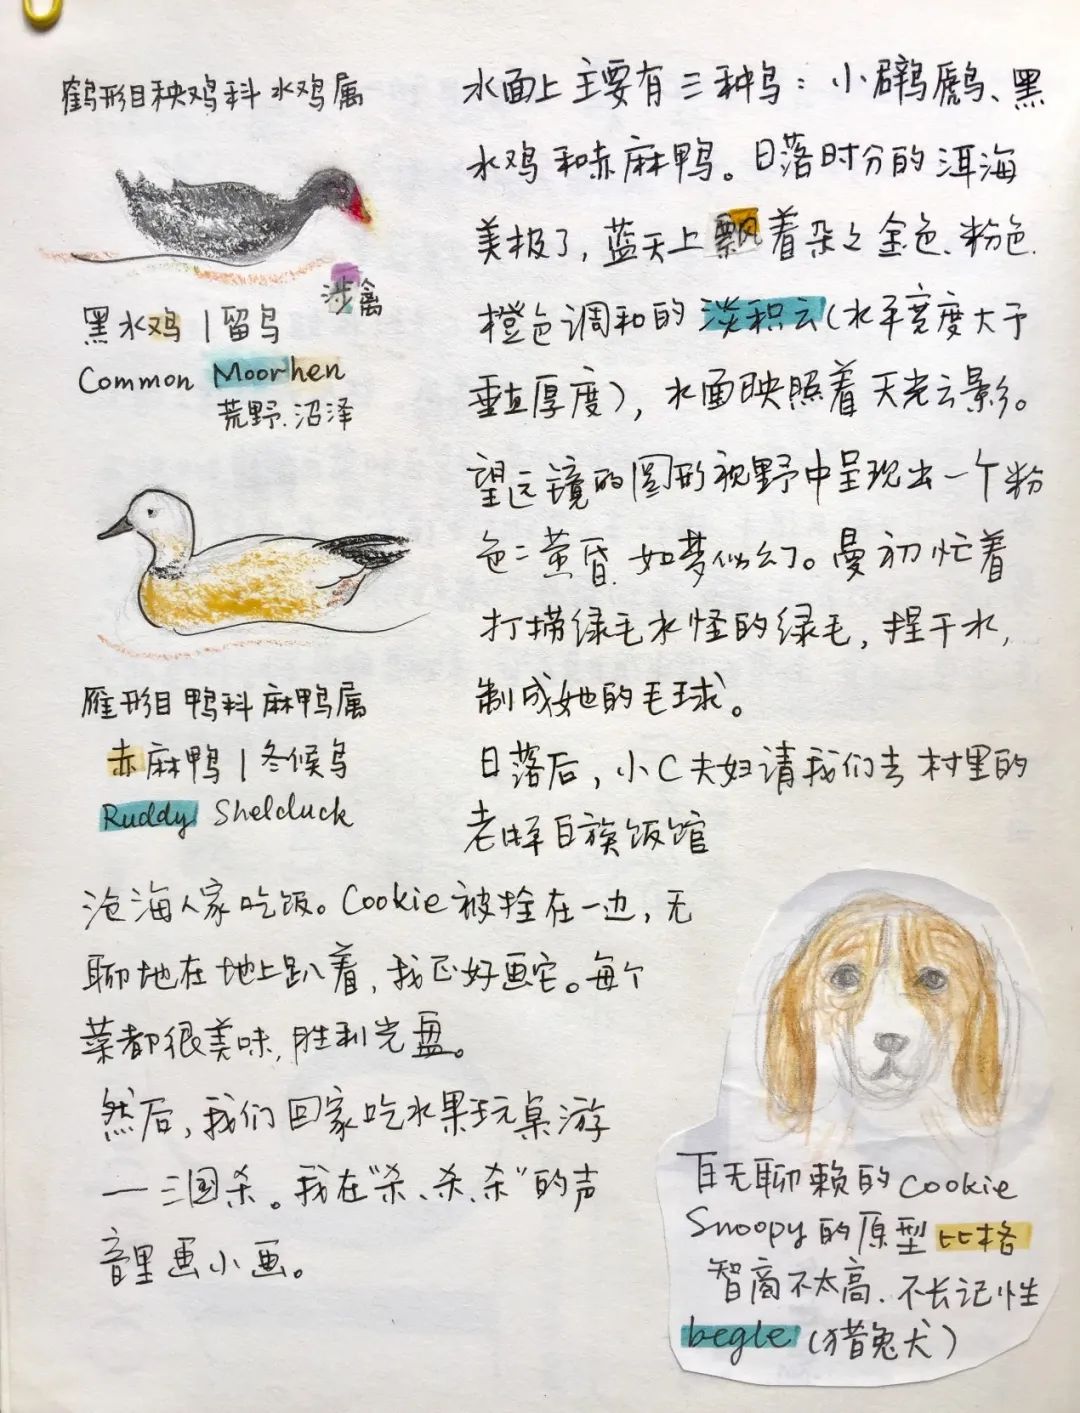 鹤形目秧鸡科 水鸡属
涉禽
黑水鸡 | 留鸟
Common Moorhen
荒野.沼泽
雁形目 鸭科 麻鸭属
赤麻鸭 | 冬候鸟
Ruddy Shelduck
水面上主要有三种鸟：小䴙䴘、黑
水鸡和赤麻鸭。日落时分的洱海
美极了，蓝天上飘着朵之金色、粉色、
橙色调和的淡积云（水平宽度大于
垂直厚度），水面映照着天光云影。
望远镜的圆形视野中呈现出一个粉
色二黄昏，如梦似幻。曼初忙着
打捞绿毛水怪的绿毛，捏干水，
制成她的毛球。
日落后，小C夫妇请我们去村里的
老牌白族饭馆
沧海人家吃饭。Cookie被拴在一边，无
聊地在地上趴着，我正好画它。每个
菜都很美味，胜利光盘。
然后，我们回家吃水果玩桌游
—三国杀。我在“杀、杀、杀”的声
音里画小画。
百无聊赖的Cookie
Snoopy的原型比格
智商不太高、不长记性
begle（猎兔犬）